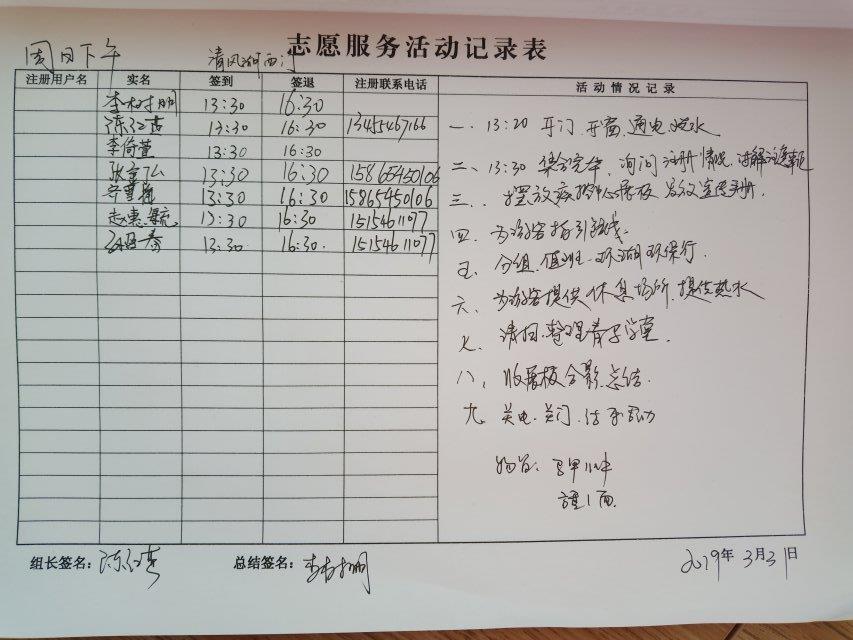 志愿服务活动记录表
周日下午 清风湖西门
注册用户名 实名 签到 签退 注册联系电话 活动情况记录
13:30 16:30
13:30 16:30 13455467166
李倚萱 13:30 16:30
13:30 16:30 15865450106
13:30 16:30 15865450106
赵惠 13:30 16:30 15154611077
13:30 16:30. 15154611077
一、13:20 开门、开窗、通电、烧水
二、13:30 集合完毕、询问注册情况、讲解注意事项
三、摆放 展板
四、为游客指引路线.
五、分组、值班、环湖环保行.
六、为游客提供休息场所、提供热水
七、清扫、整理 学堂.
八、收展板合影总结.
九、关电、关门、结束活动
1面.
组长签名: 总结签名:
2019年3月31日